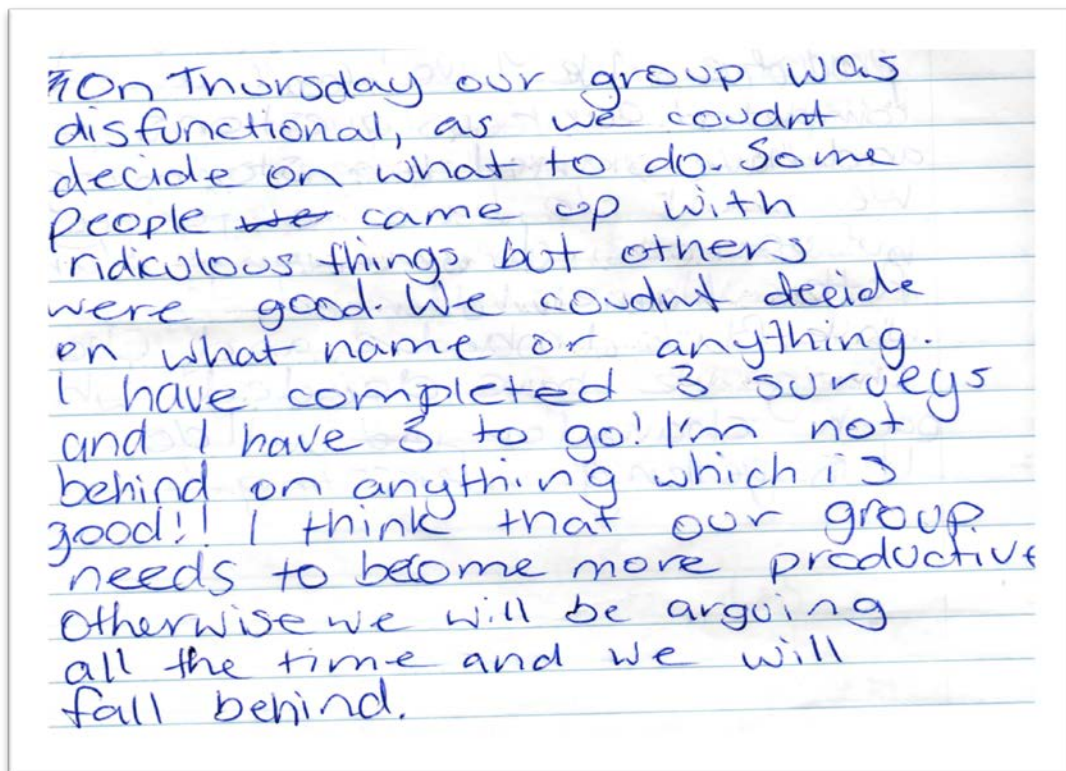 On Thursday our group was
disfunctional, as we coudnt
decide on what to do. Some
people we came up with
ridiculous things but others
were good. We coudnt decide
on what name or anything.
I have completed 3 surveys
and I have 3 to go! I'm not
behind on anything which is
good!! I think that our group
needs to become more productive
otherwise we will be arguing
all the time and we will
fall behind.